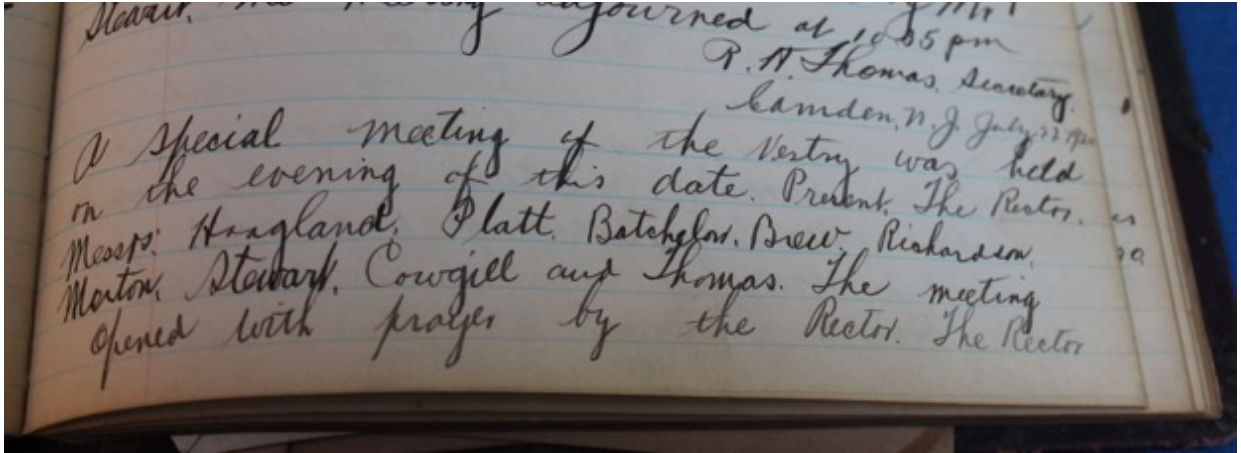 Stewart, the meeting adjourned at 10 05 pm
R. H. Thomas, Secretary.
Camden, N. J. July 22
A special meeting of the Vestry was held
on the evening of this date. Present. The Rector.
Messrs: Hoagland, Platt. Batchelor. Brew. Richardson,
Morton, Stewart, Cowgill and Thomas. The meeting
opened with prayer by the Rector. The Rector